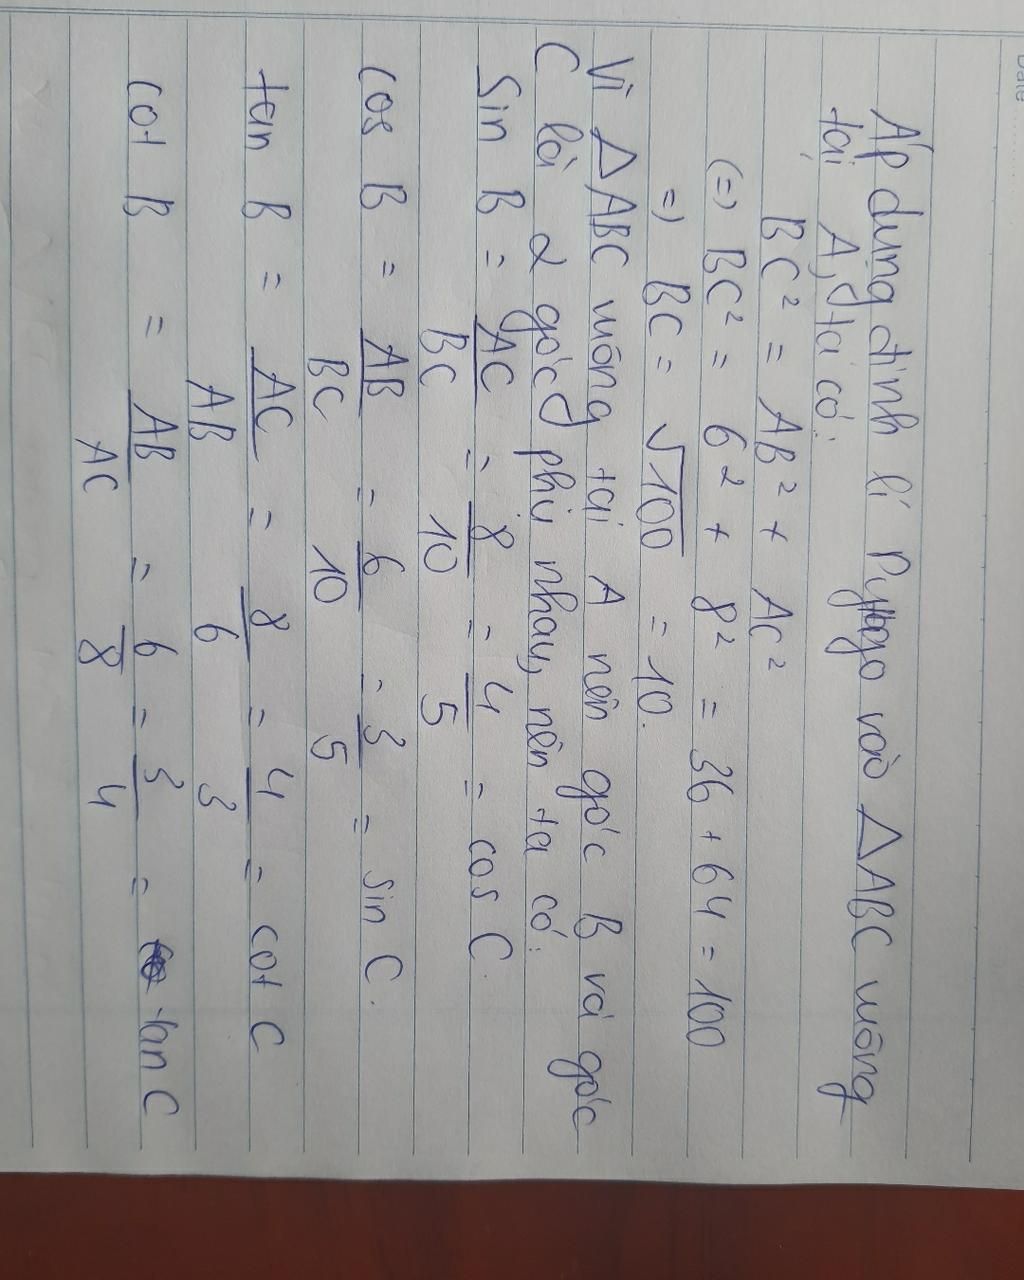 Date
Áp dụng định lí Pytago vào △ABC vuông
tại A, ta có:
BC² = AB² + AC²
(=) BC² = 6² + 8² = 36 + 64 = 100
=) BC = √100 = 10.
Vì △ABC vuông tại A nên góc B và góc
C là 2 góc phụ nhau, nên ta có:
Sin B = AC/BC = 8/10 = 4/5 = cos C.
cos B = AB/BC = 6/10 = 3/5 = sin C.
tan B = AC/AB = 8/6 = 4/3 = cot C
cot B = AB/AC = 6/8 = 3/4 = tan C